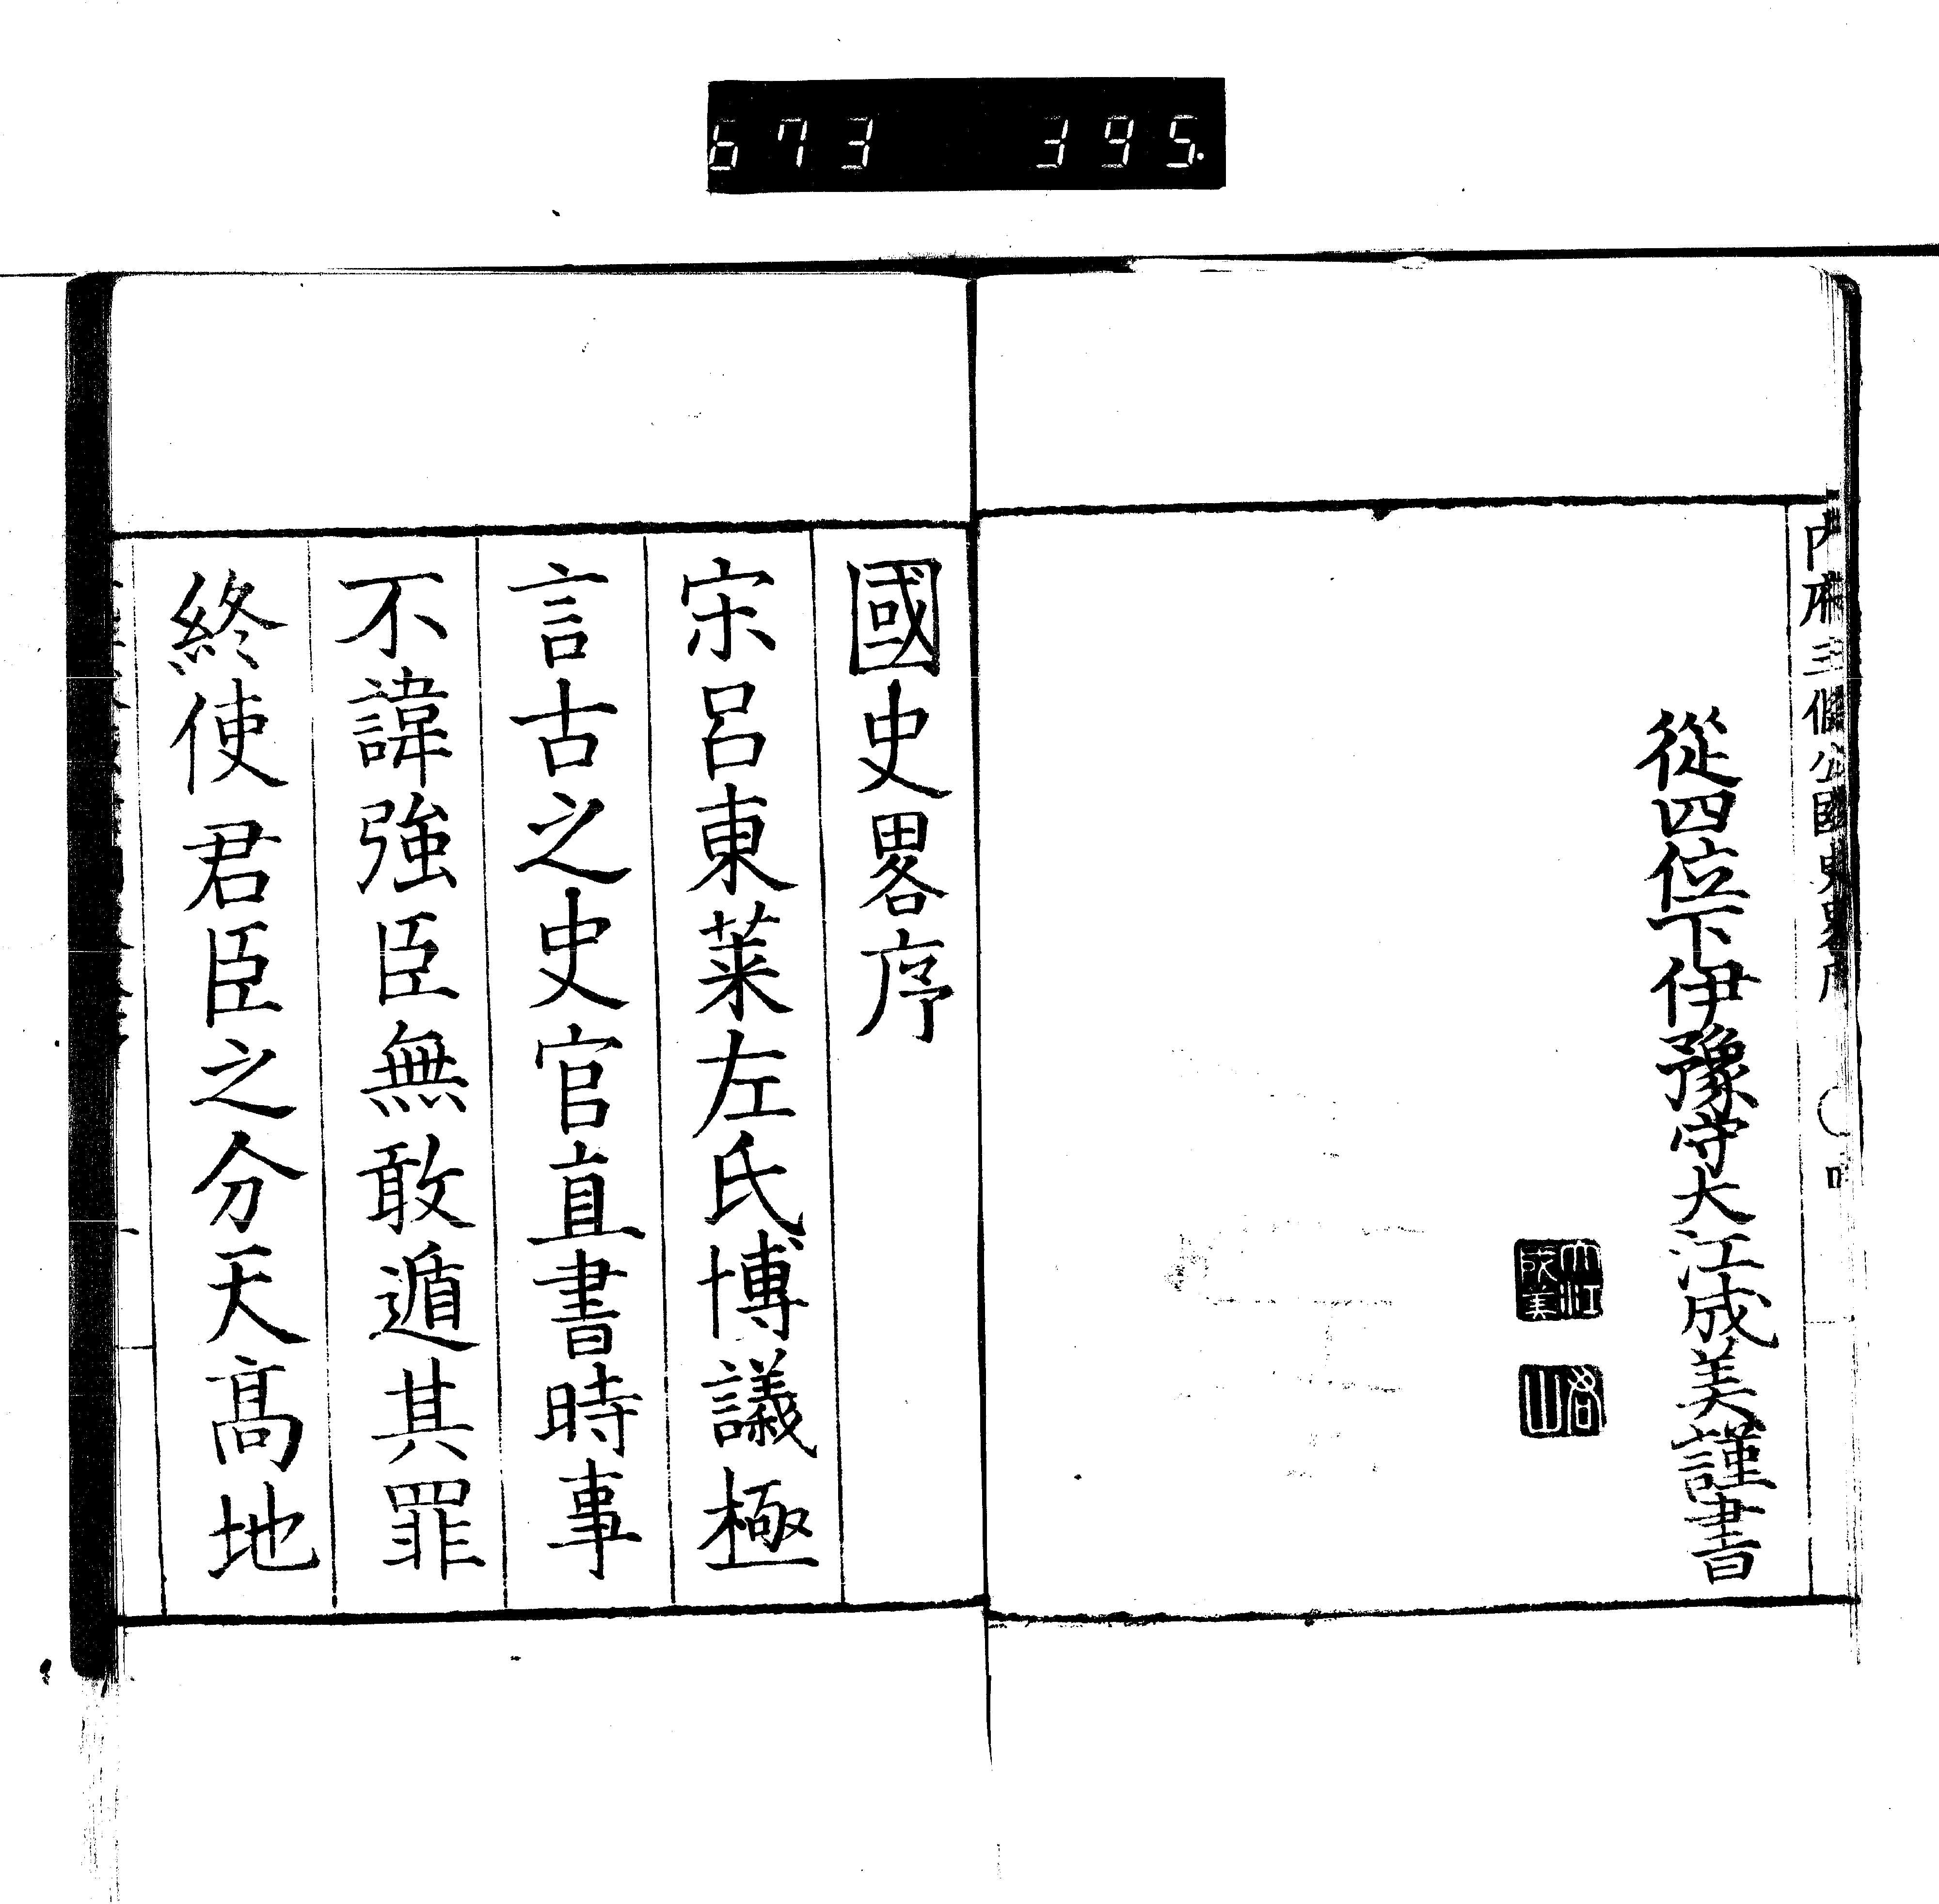 673 395.
從四位下伊豫守大江成美謹書
大江成美
國史畧序
宋呂東萊左氏博議極
言古之史官直書時事
不諱強臣無敢遁其罪
終使君臣之分天高地